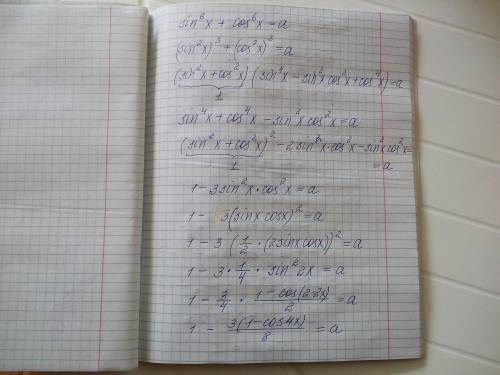 sin⁶x + cos⁶x = a
(sin²x)³ + (cos²x)³ = a
(sin²x + cos²x)(sin⁴x - sin²x cos²x + cos⁴x) = a
1
sin⁴x + cos⁴x - sin²x cos²x = a
(sin²x + cos²x)² - 2sin²x · cos²x - sin²x cos²x =
1
= a
1 - 3sin²x · cos²x = a
1 - 3(sinx cosx)² = a
1 - 3 (1/2 · (2sinx cosx))² = a
1 - 3 · 1/4 · sin²2x = a
1 - 3/4 · (1 - cos(2·2x))/2 = a
1 - 3(1 - cos4x)/8 = a